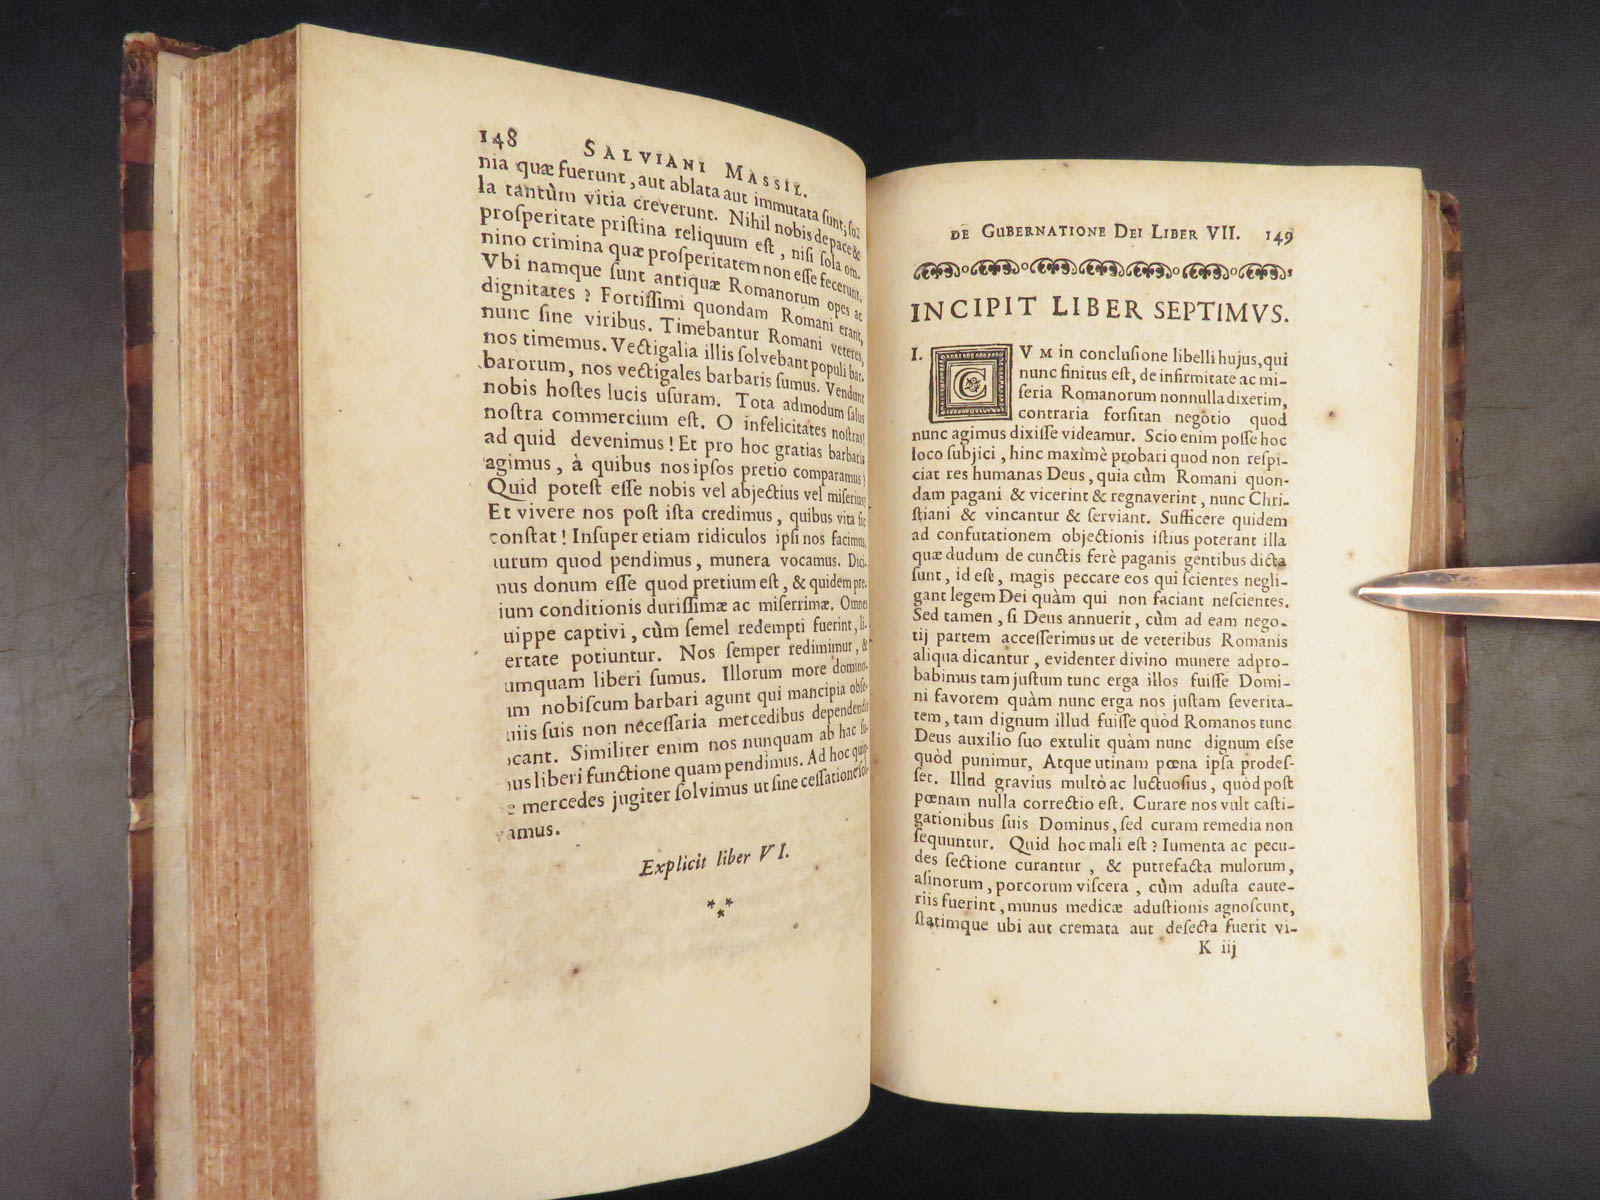 148 SALVIANI MASSIL.
nia quæ fuerunt, aut ablata aut immutata sunt; so-
la tantùm vitia creverunt. Nihil nobis de pace &
prosperitate pristina reliquum est, nisi sola om-
nino crimina quæ prosperitatem non esse fecerunt.
Vbi namque sunt antiquæ Romanorum opes ac
dignitates? Fortissimi quondam Romani erant,
nunc sine viribus. Timebantur Romani veteres,
nos timemus. Vectigalia illis solvebant populi bar-
barorum, nos vectigales barbaris sumus. Vendunt
nobis hostes lucis usuram. Tota admodum salus
nostra commercium est. O infelicitates nostras!
ad quid devenimus! Et pro hoc gratias barbaris
agimus, à quibus nos ipsos pretio comparamus?
Quid potest esse nobis vel abjectius vel miserius?
Et vivere nos post ista credimus, quibus vita sic
constat! Insuper etiam ridiculos ipsi nos facimus,
aurum quod pendimus, munera vocamus. Dici-
mus donum esse quod pretium est, & quidem pre-
ium conditionis durissimæ ac miserrimæ. Omnes
uippe captivi, cùm semel redempti fuerint, li-
ertate potiuntur. Nos semper redimimur, &
umquam liberi sumus. Illorum more domino-
um nobiscum barbari agunt qui mancipia obse-
uiis suis non necessaria mercedibus dependendis
ocant. Similiter enim nos nunquam ab hac su-
us liberi functione quam pendimus. Ad hoc quip-
e mercedes jugiter solvimus ut sine cessatione sol-
vamus.
Explicit liber VI.
DE GUBERNATIONE DEI LIBER VII. 149
INCIPIT LIBER SEPTIMVS.
I. CVM in conclusione libelli hujus, qui
nunc finitus est, de infirmitate ac mi-
seria Romanorum nonnulla dixerim,
contraria forsitan negotio quod
nunc agimus dixisse videamur. Scio enim posse hoc
loco subjici, hinc maximè probari quod non respi-
ciat res humanas Deus, quia cùm Romani quon-
dam pagani & vicerint & regnaverint, nunc Chri-
stiani & vincantur & serviant. Sufficere quidem
ad confutationem objectionis istius poterant illa
quæ dudum de cunctis ferè paganis gentibus dicta
sunt, id est, magis peccare eos qui scientes negli-
gant legem Dei quàm qui non faciant nescientes.
Sed tamen, si Deus annuerit, cùm ad eam nego-
tij partem accesserimus ut de veteribus Romanis
aliqua dicantur, evidenter divino munere adpro-
babimus tam justum tunc erga illos fuisse Domi-
ni favorem quàm nunc erga nos justam severita-
tem, tam dignum illud fuisse quòd Romanos tunc
Deus auxilio suo extulit quàm nunc dignum esse
quòd punimur, Atque utinam pœna ipsa prodes-
set. Illud gravius multò ac luctuosius, quòd post
pœnam nulla correctio est. Curare nos vult casti-
gationibus suis Dominus, sed curam remedia non
sequuntur. Quid hoc mali est? Iumenta ac pecu-
des sectione curantur, & putrefacta mulorum,
asinorum, porcorum viscera, cùm adusta caute-
riis fuerint, munus medicæ adustionis agnoscunt,
statimque ubi aut cremata aut desecta fuerit vi-
K iij